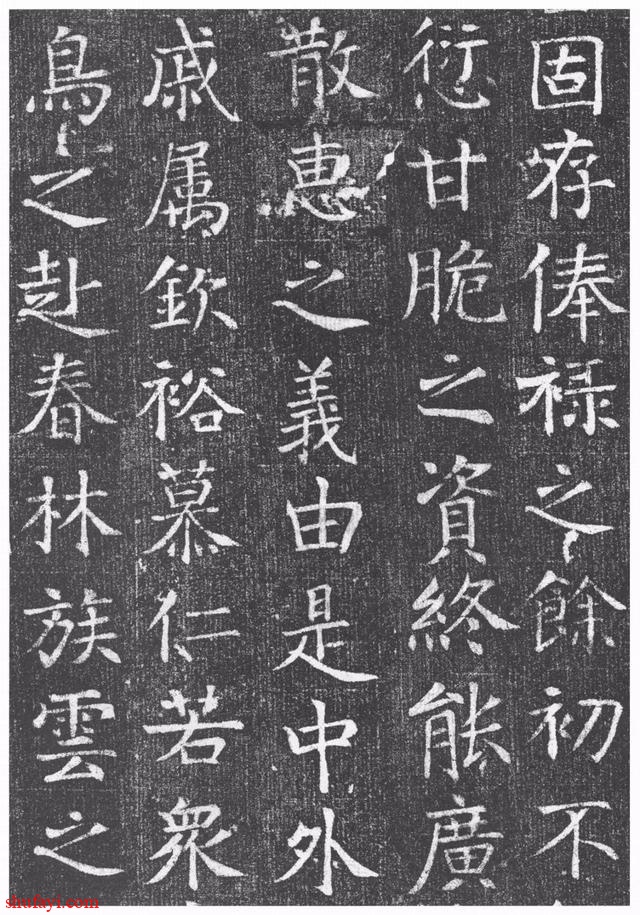 固俸禄之餘初不
愆甘脆之資終能廣
散惠之義由是中外
戚属欽裕慕仁若衆
鳥之赴春林族雲之
shufayi.com